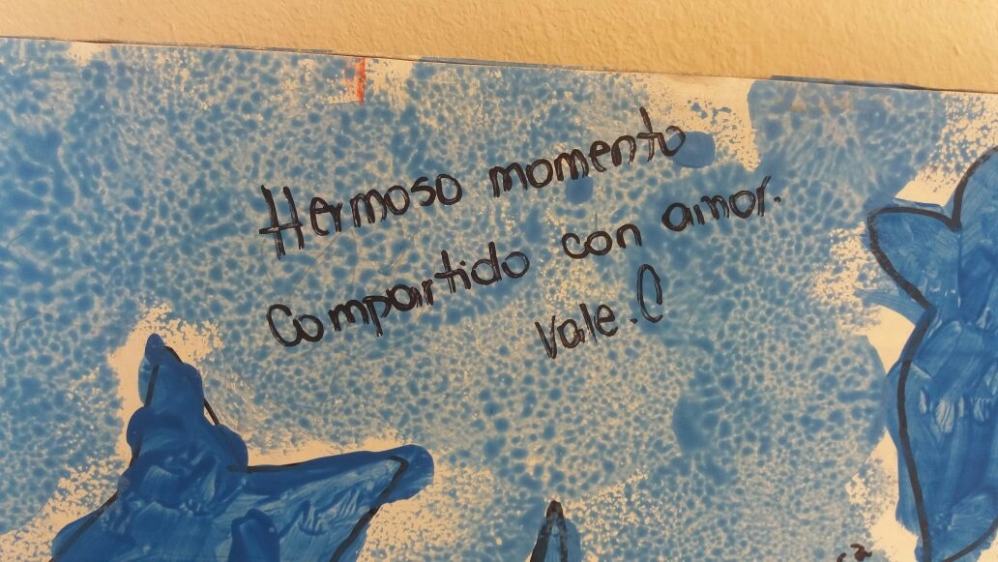 Hermoso momento
Compartido con amor.
Vale. C